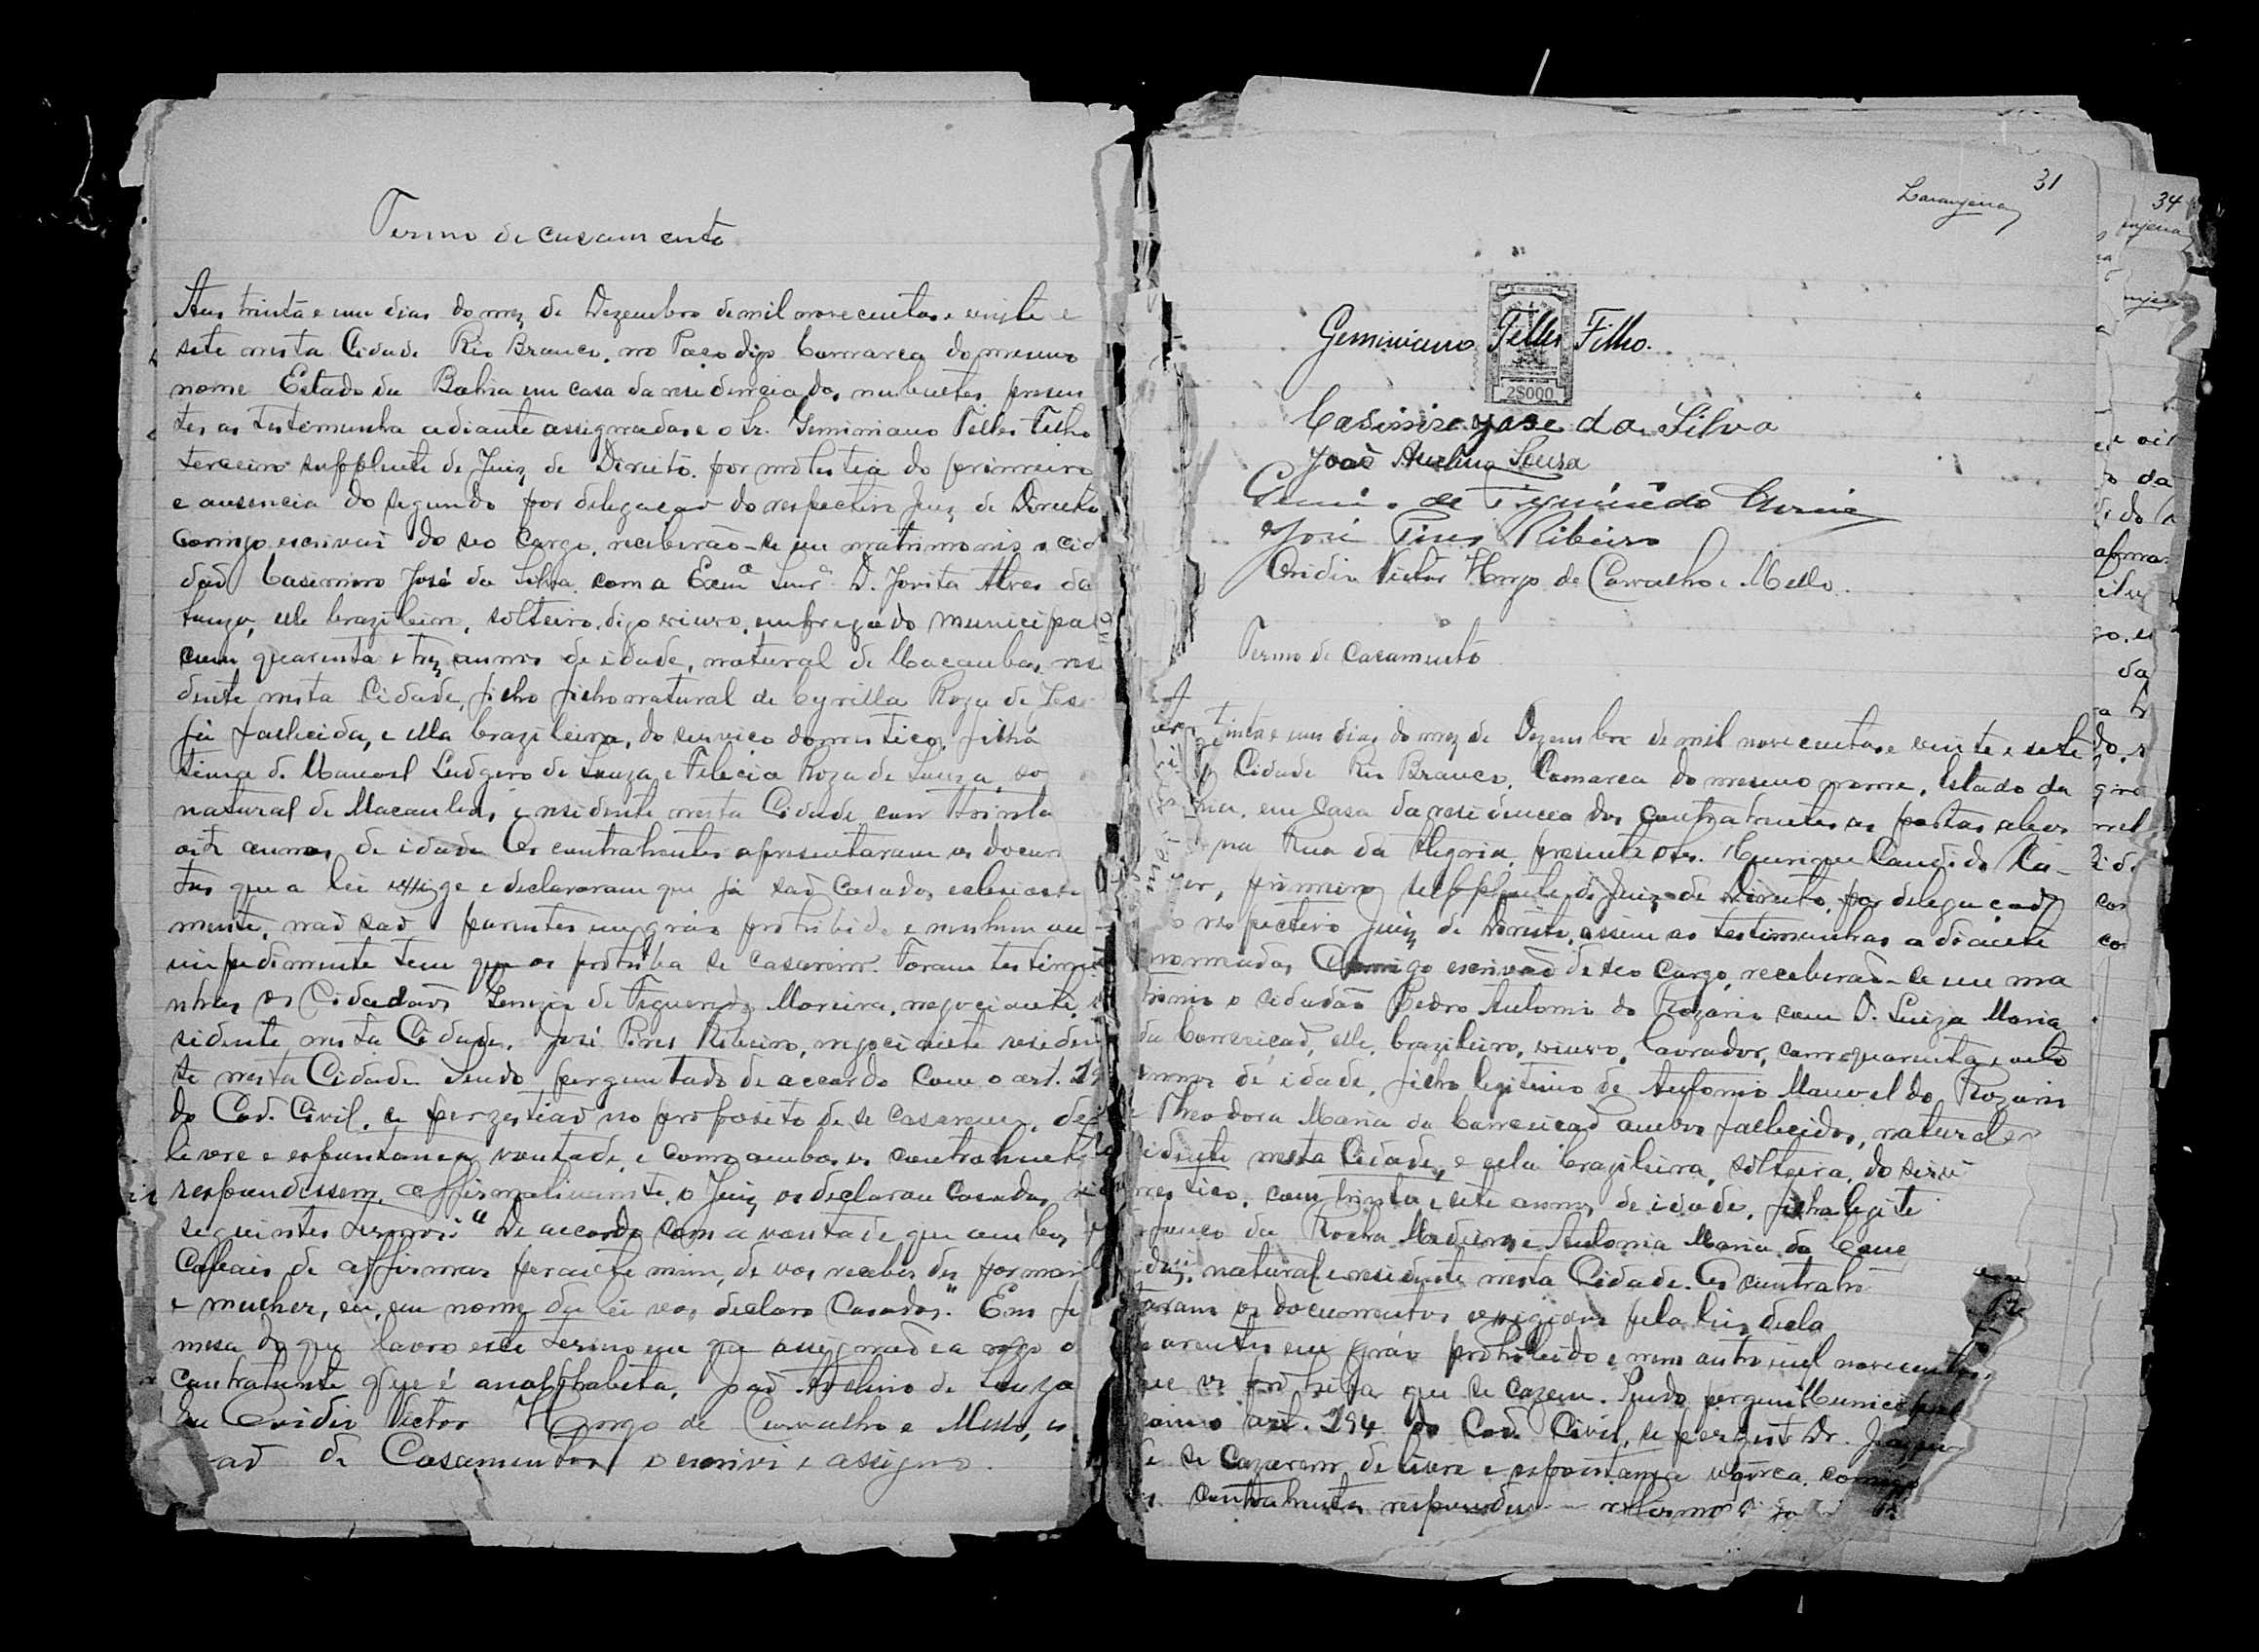 Termo de casamento
Aos trinta e um dias do mez de Dezembro de mil novecentos e vinte e
sete nesta Cidade Rio Branco, no Paço digo Comarca do mesmo
nome Estado da Bahia em casa da residencia dos nubentes, presen
tes as testemunha adiante assignadas e o Sr. Geminiano Telles Filho
terceiro supplente de Juiz de Direito por molestia do primeiro
e ausencia do segundo por delegação do respectivo Juiz de Direito
comigo escrivão do seo cargo, receberão-se em matrimonio o cid
dão Casimiro José da Silva com a Exmª Snrª D. Jovita Alves de
Souza, elle brazileiro, solteiro, digo viuvo, empregado municipal
com quarenta e trez annos de idade, natural de Macaubas, resi
dente nesta Cidade, filho filho natural de Cyrilla Roza de Jes
já fallecida, e ella brazileira, do serviço domestico, filha
tima de Manoel Ludgero de Souza e Felicia Roza de Souza,
natural de Macaubas, e residente nesta Cidade com trinta
oito annos de idade Os contrahentes apresentaram os docum
tos que a lei exige e declararam que já são casados eclesiast
mente, não são parentes em gráo prohibido e nenhum ou
impedimento tem que os prohiba se casarem. Foram testimu
nhas os Cidadãos de Figueredo Moreira, negociante,
sidente nesta Cidade, José Pires Ribeiro, negociante residen
te nesta Cidade Sendo perguntado de accordo com o art. 19
do Cod. Civil, se perzestião no proposito de se casarem, de
livre e espontanea vontade, e como ambos os contrahente
respondessem, affirmativamente, o Juiz os declarou casados,
seguintes termos: "De accordo com a vontade que ambos
cabais de affirmar perante mim, de vos receberdes por mari
e mulher, eu, em nome da lei vos declaro casados." Em fi
mesa do que lavro este termo em que assignão e a rogo d
contratante que é analphabeta, João Avelino de Souza
Eu Ovidio Victor Hugo de Carvalho e Mello, es
vão de Casamentos o escrivi e assigno.
31
Laranjeira
Geminiano Telles Filho.
2$000
Casimiro Jose da Silva
João Avelino Sousa
de Figueirêdo
José Pires Ribeiro
Ovidio Victor Hugo de Carvalho e Mello.
Termo de casamento
trinta e um dias do mez de Dezembro de mil novecentos e vinte e sete
Cidade Rio Branco, Comarca do mesmo nome, Estado da
em casa da residencia dos contratantes as portas abert
na Rua da Alegria, presente o Sr. Henrique Candido
primeiro supplente de Juiz de Direito, por delegação
do respectivo Juiz de Direito, assim as testimunhas adiante
nomeadas Comigo escrivão de seo cargo, receberão-se em ma
trimonio o cidadão Pedro Antonio do Rozario com D. Luiza Maria
da Conceição, elle, brazileiro, viuvo, lavrador, com quarenta e oito
annos de idade, filho legitimo de Antonio Manoel do Rozario
e Theodora Maria da Conceição ambos fallecidos, natural e
sidente nesta Cidade, e ella brazileira, solteira, do servi
mestico, com trinta e sete annos de idade, filha legiti
da Rocha Medeiros e Antonia Maria da Conc
natural e residente nesta Cidade. Os contratn
taram os documentos exigidos pela lei, decla
parentes em gráo prohibido e nem outro
que os prohiba que se cazem. Sendo pergun
como art. 194 do Cod. Civil, se perzist
de se cazarem de livre e espontanea
contrahentes responderem
34